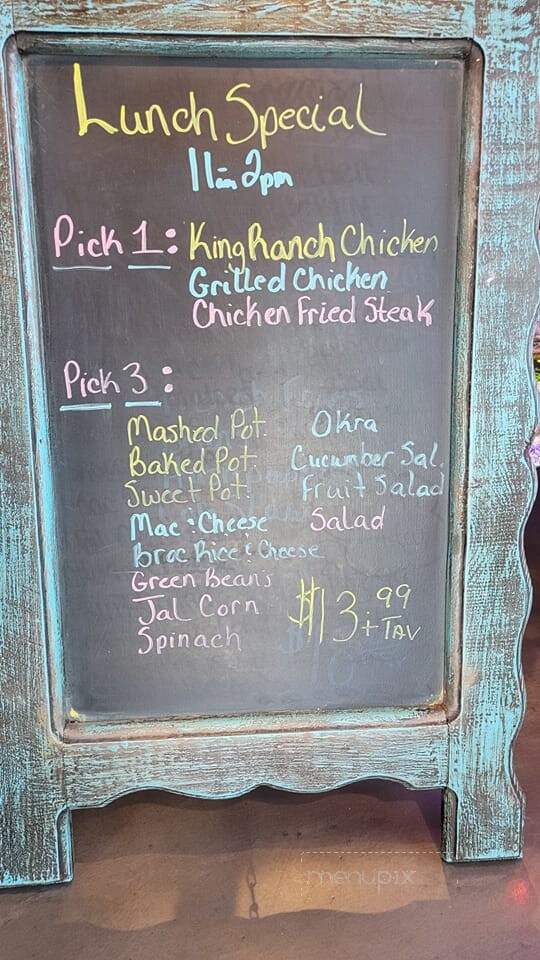 Lunch Special
11am 2pm
Pick 1: King Ranch Chicken
Grilled Chicken
Chicken Fried Steak
Pick 3:
Mashed Pot.
Baked Pot.
Sweet Pot.
Mac & Cheese
Broc Rice & Cheese
Green Beans
Jal Corn
Spinach
Okra
Cucumber Sal.
Fruit Salad
Salad
$13.99
+ TAX
menupix